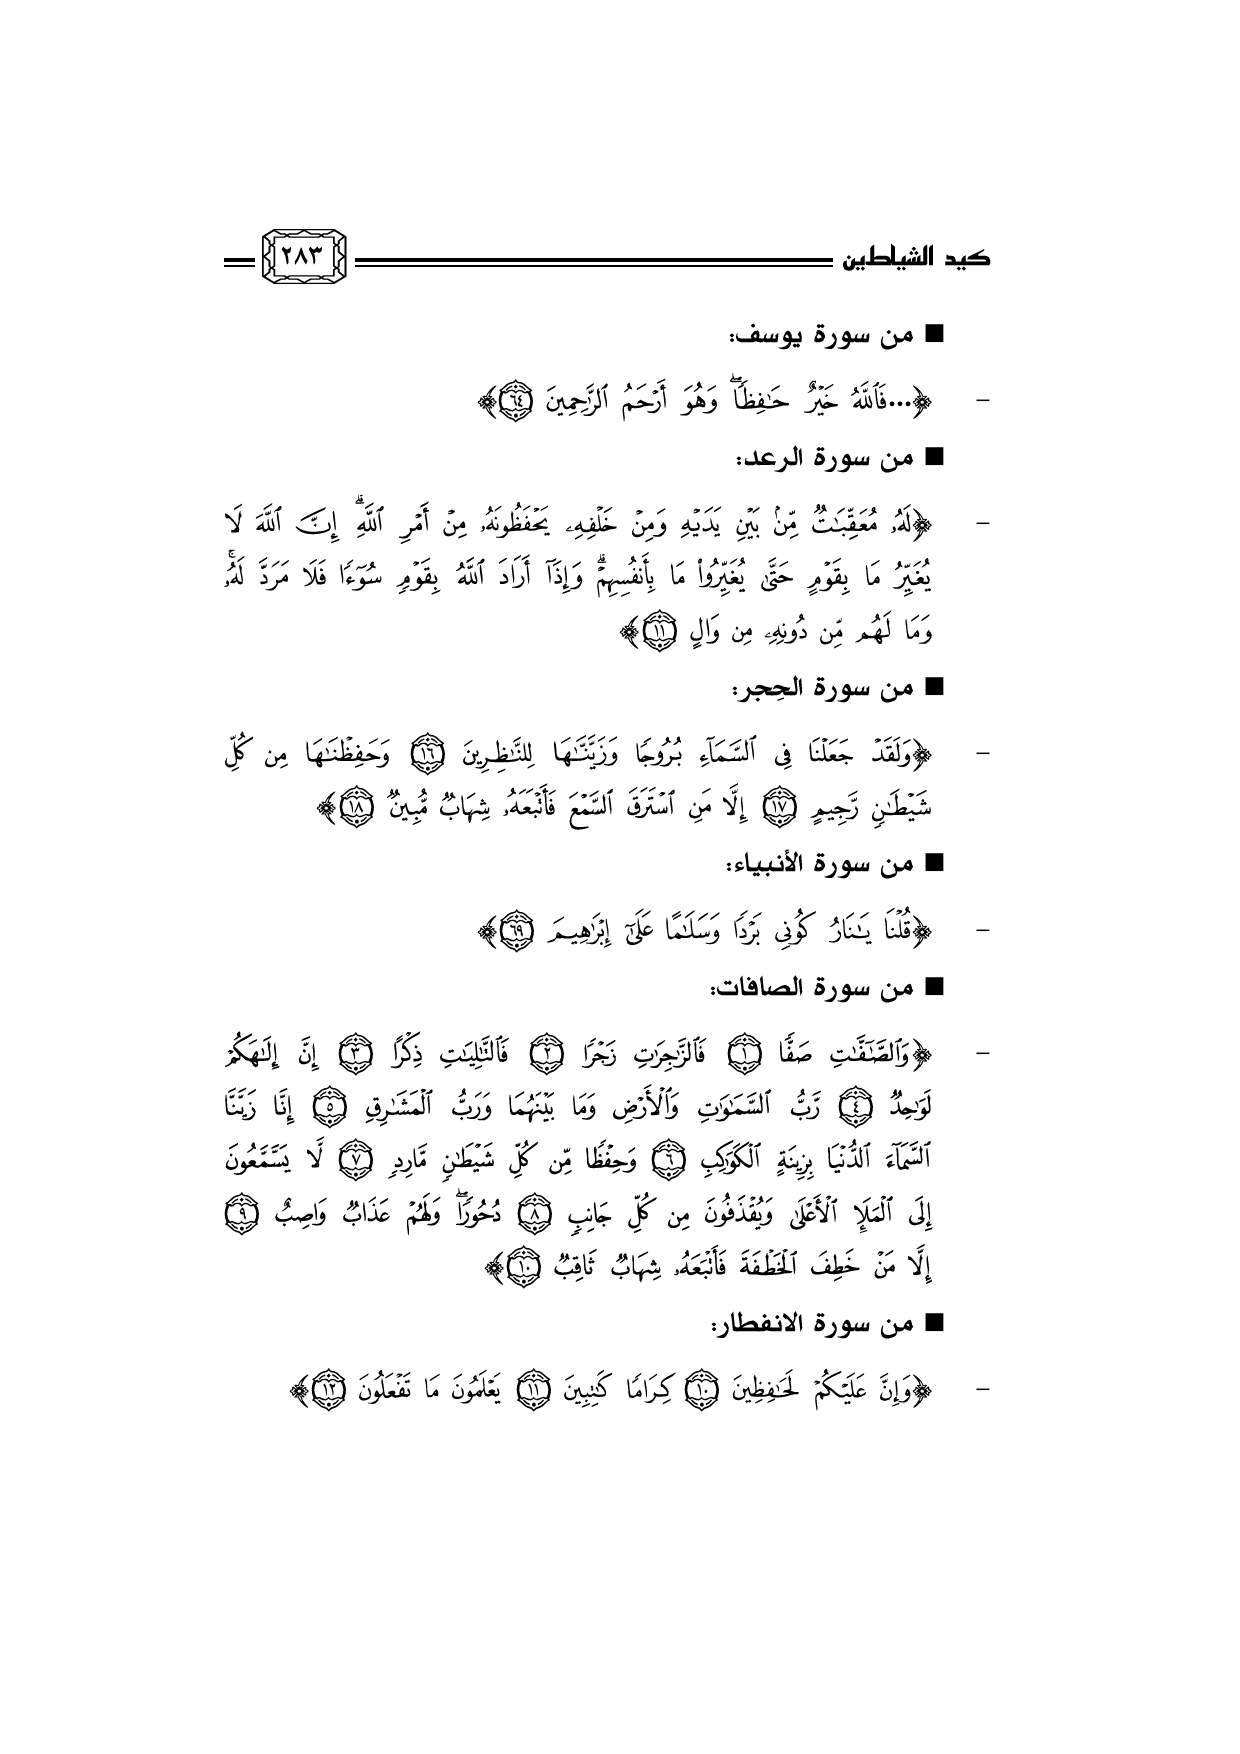 كيد الشياطين ٢٨٣
■ من سورة يوسف:
– ﴿...فَٱللَّهُ خَيْرٌ حَـٰفِظًاۖ وَهُوَ أَرْحَمُ ٱلرَّٰحِمِينَ ۝٦٤﴾
■ من سورة الرعد:
– ﴿لَهُۥ مُعَقِّبَـٰتٌ مِّنۢ بَيْنِ يَدَيْهِ وَمِنْ خَلْفِهِۦ يَحْفَظُونَهُۥ مِنْ أَمْرِ ٱللَّهِۗ إِنَّ ٱللَّهَ لَا
يُغَيِّرُ مَا بِقَوْمٍ حَتَّىٰ يُغَيِّرُوا۟ مَا بِأَنفُسِهِمْۗ وَإِذَآ أَرَادَ ٱللَّهُ بِقَوْمٍ سُوٓءًا فَلَا مَرَدَّ لَهُۥۚ
وَمَا لَهُم مِّن دُونِهِۦ مِن وَالٍ ۝١١﴾
■ من سورة الحِجر:
– ﴿وَلَقَدْ جَعَلْنَا فِى ٱلسَّمَآءِ بُرُوجًا وَزَيَّنَّـٰهَا لِلنَّـٰظِرِينَ ۝١٦ وَحَفِظْنَـٰهَا مِن كُلِّ
شَيْطَـٰنٍ رَّجِيمٍ ۝١٧ إِلَّا مَنِ ٱسْتَرَقَ ٱلسَّمْعَ فَأَتْبَعَهُۥ شِهَابٌ مُّبِينٌ ۝١٨﴾
■ من سورة الأنبياء:
– ﴿قُلْنَا يَـٰنَارُ كُونِى بَرْدًا وَسَلَـٰمًا عَلَىٰٓ إِبْرَٰهِيمَ ۝٦٩﴾
■ من سورة الصافات:
– ﴿وَٱلصَّـٰٓفَّـٰتِ صَفًّا ۝١ فَٱلزَّٰجِرَٰتِ زَجْرًا ۝٢ فَٱلتَّـٰلِيَـٰتِ ذِكْرًا ۝٣ إِنَّ إِلَـٰهَكُمْ
لَوَٰحِدٌ ۝٤ رَّبُّ ٱلسَّمَـٰوَٰتِ وَٱلْأَرْضِ وَمَا بَيْنَهُمَا وَرَبُّ ٱلْمَشَـٰرِقِ ۝٥ إِنَّا زَيَّنَّا
ٱلسَّمَآءَ ٱلدُّنْيَا بِزِينَةٍ ٱلْكَوَاكِبِ ۝٦ وَحِفْظًا مِّن كُلِّ شَيْطَـٰنٍ مَّارِدٍ ۝٧ لَّا يَسَّمَّعُونَ
إِلَى ٱلْمَلَإِ ٱلْأَعْلَىٰ وَيُقْذَفُونَ مِن كُلِّ جَانِبٍ ۝٨ دُحُورًاۖ وَلَهُمْ عَذَابٌ وَاصِبٌ ۝٩
إِلَّا مَنْ خَطِفَ ٱلْخَطْفَةَ فَأَتْبَعَهُۥ شِهَابٌ ثَاقِبٌ ۝١٠﴾
■ من سورة الانفطار:
– ﴿وَإِنَّ عَلَيْكُمْ لَحَـٰفِظِينَ ۝١٠ كِرَامًا كَـٰتِبِينَ ۝١١ يَعْلَمُونَ مَا تَفْعَلُونَ ۝١٢﴾